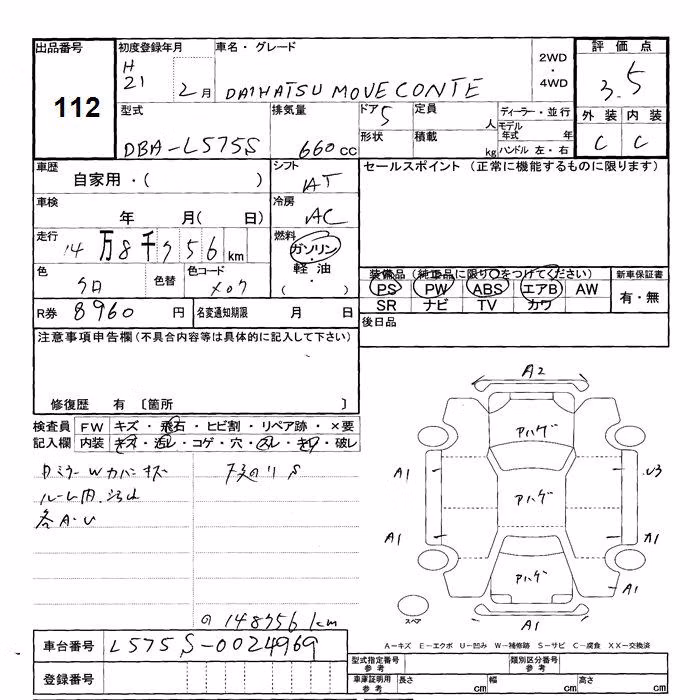 出品番号 初度登録年月 車名・グレード 2WD ・ 4WD 評価点
112
H 21 2月 DAIHATSU MOVE CONTE 3.5
型式 排気量 ドア 5 定員 人 ディーラー・並行 外装 内装
DBA-L575S 660cc 形状 積載 kg モデル年式 年 C C
ハンドル 左・右
車歴 自家用・( ) シフト AT セールスポイント (正常に機能するものに限ります)
車検 年 月( 日) 冷房 AC
走行 14万8千756km 燃料 ガソリン ・ 軽油 ( ・ )
色 クロ 色替 色コード X07
装備品 (純正品に限り○をつけてください) 新車保証書
PS PW ABS エアB AW 有・無
SR ナビ TV カワ
R券 8960円 名変通知期限 月 日 後日品
注意事項申告欄(不具合内容等は具体的に記入して下さい)
修復歴 有 〔箇所 〕
検査員 FW キズ・飛石・ヒビ割・リペア跡・×要
記入欄 内装 キズ・汚レ・コゲ・穴・スレ・キレ・破レ
ルーム内 汚れ
各A・U
148756km
A2
アハゲ
A1 アハゲ U3
A1 A1
アハゲ
A1
スペア A1
車台番号 L575S-0024969
A-キズ E-エクボ U-凹み W-補修跡 S-サビ C-腐食 XX-交換済
登録番号
型式指定番号 参考 類別区分番号 参考
車庫証明用 参考 長さ cm 幅 cm 高さ cm